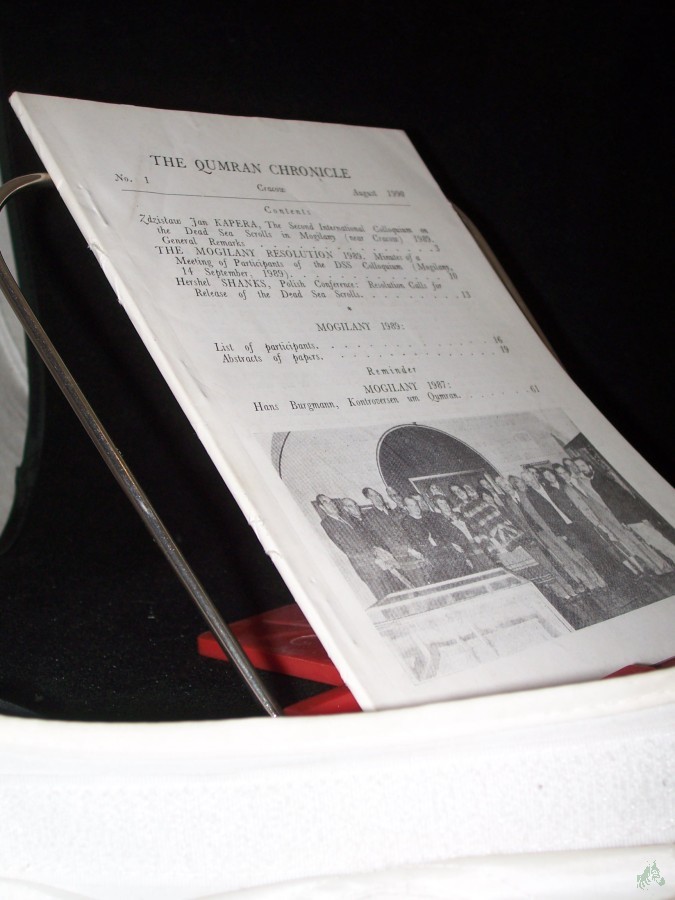 THE QUMRAN CHRONICLE
No. 1 Cracow August 1990
Contents
Zdzisław Jan KAPERA, The Second International Colloquium on
the Dead Sea Scrolls in Mogilany (near Cracow) 1989.
General Remarks . . . . . . . . . . . . . . . . 3
THE MOGILANY RESOLUTION 1989. Minutes of a
Meeting of Participants of the DSS Colloquium (Mogilany,
14 September, 1989). . . . . . . . . . . . . . . 10
Hershel SHANKS, Polish Conference: Resolution Calls for
Release of the Dead Sea Scrolls. . . . . . . . . . 13
*
MOGILANY 1989:
List of participants. . . . . . . . . . . . . . . 16
Abstracts of papers. . . . . . . . . . . . . . . 19
Reminder
MOGILANY 1987:
Hans Burgmann, Kontroversen um Qumran. . . . . . . 61